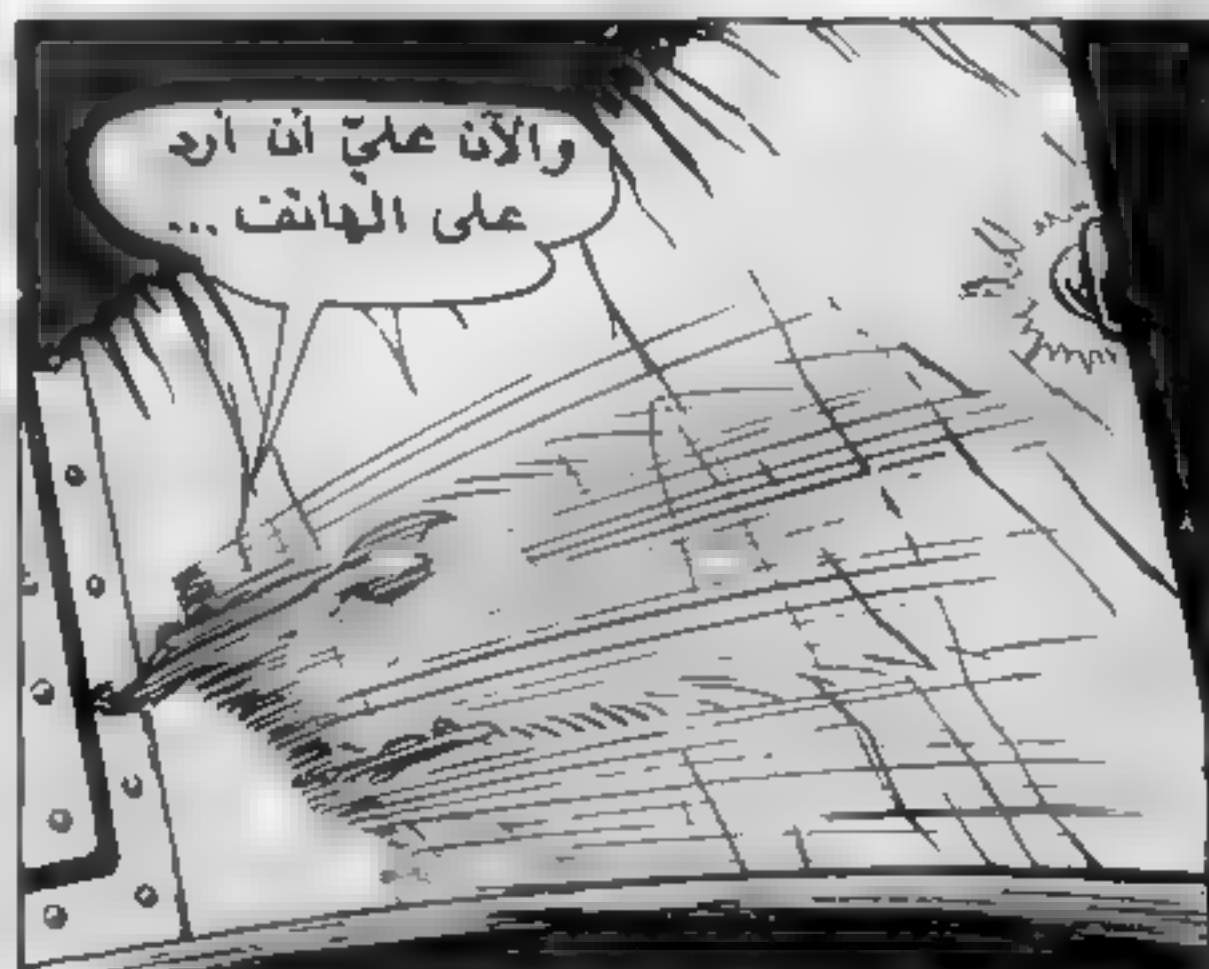 والآن عليّ أن أرد
على الهاتف ...